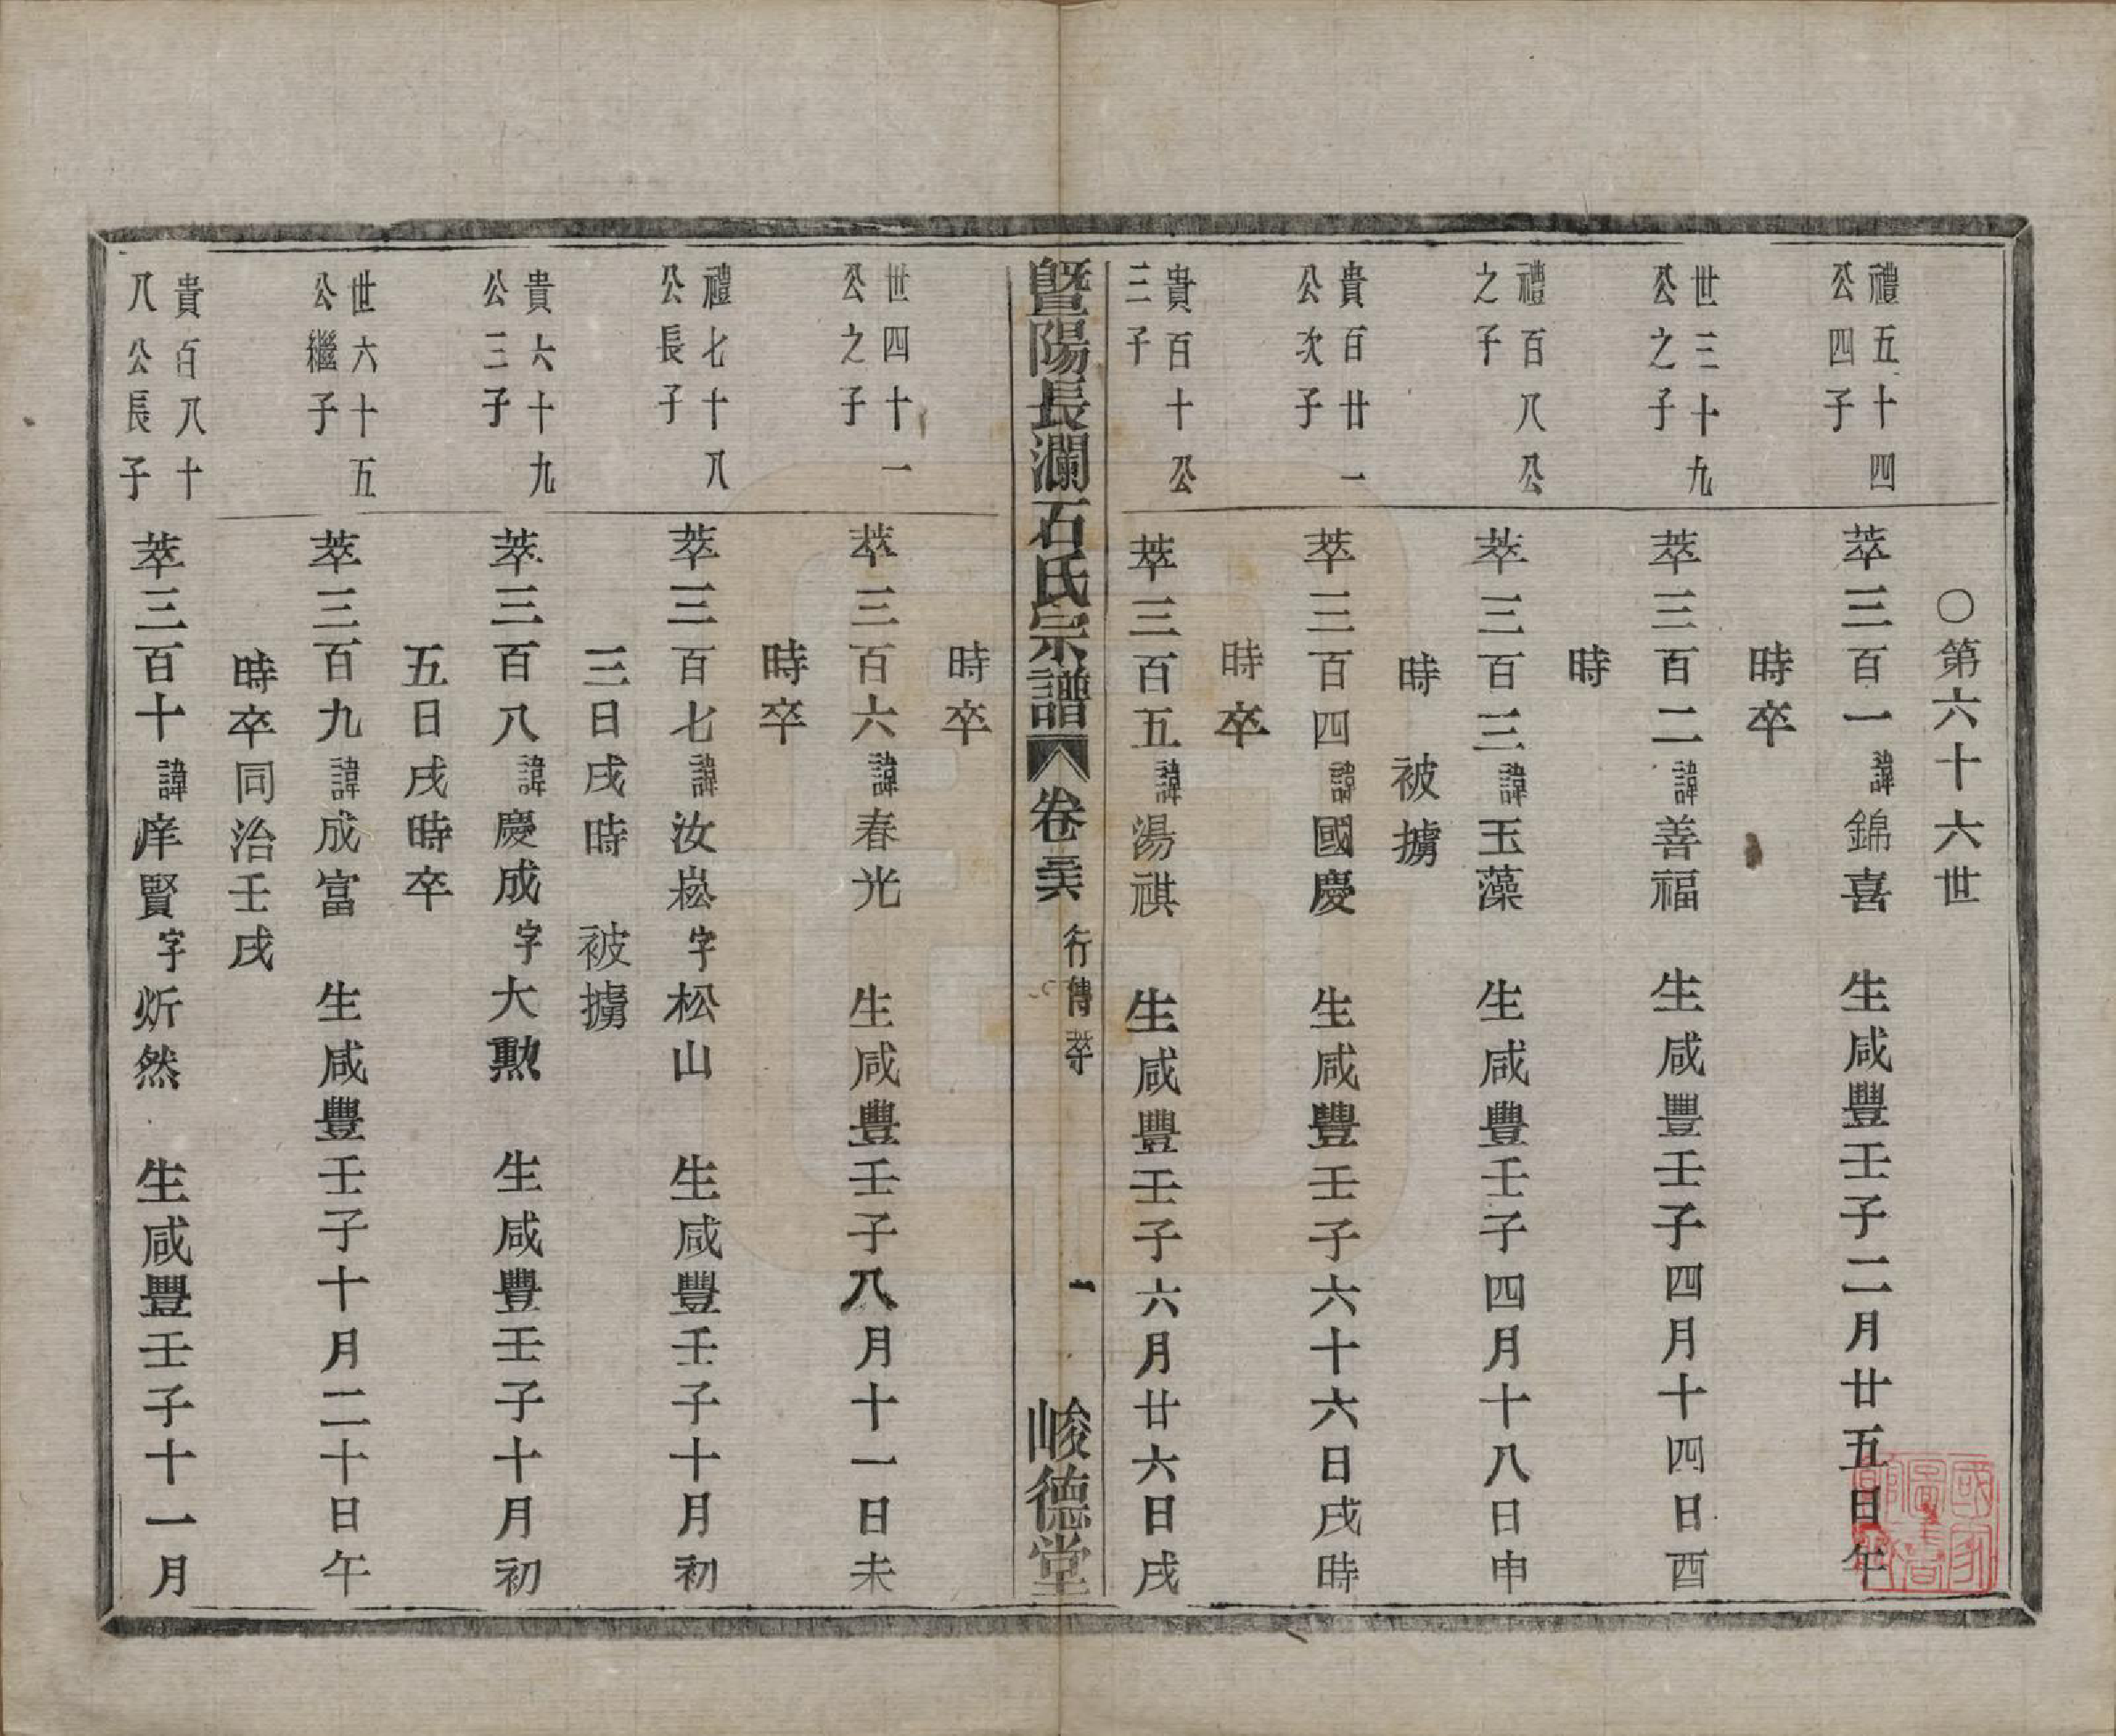 〇第六十六世
禮五十四
公四子
萃三百一諱錦喜　生咸豐壬子二月廿五日午
時卒
世三十九
公之子
萃三百二諱善福　生咸豐壬子四月十四日酉
時
禮百八公
之子
萃三百三諱玉藻　生咸豐壬子四月十八日申
時　被擄
貴百廿一
公次子
萃三百四諱國慶　生咸豐壬子六十六日戌時
時卒
貴百十公
三子
萃三百五諱湯祺　生咸豐壬子六月廿六日戌
暨陽長瀾石氏宗譜　卷三六　行傳萃　一　峻德堂
時卒
世四十一
公之子
萃三百六諱春光　生咸豐壬子八月十一日未
時卒
禮七十八
公長子
萃三百七諱汝崧字松山　生咸豐壬子十月初
三日戌時　被擄
貴六十九
公三子
萃三百八諱慶成字大勲　生咸豐壬子十月初
五日戌時卒
世六十五
公繼子
萃三百九諱成富　生咸豐壬子十月二十日午
時卒同治壬戌
貴百八十
八公長子
萃三百十諱庠賢字炘然　生咸豐壬子十一月